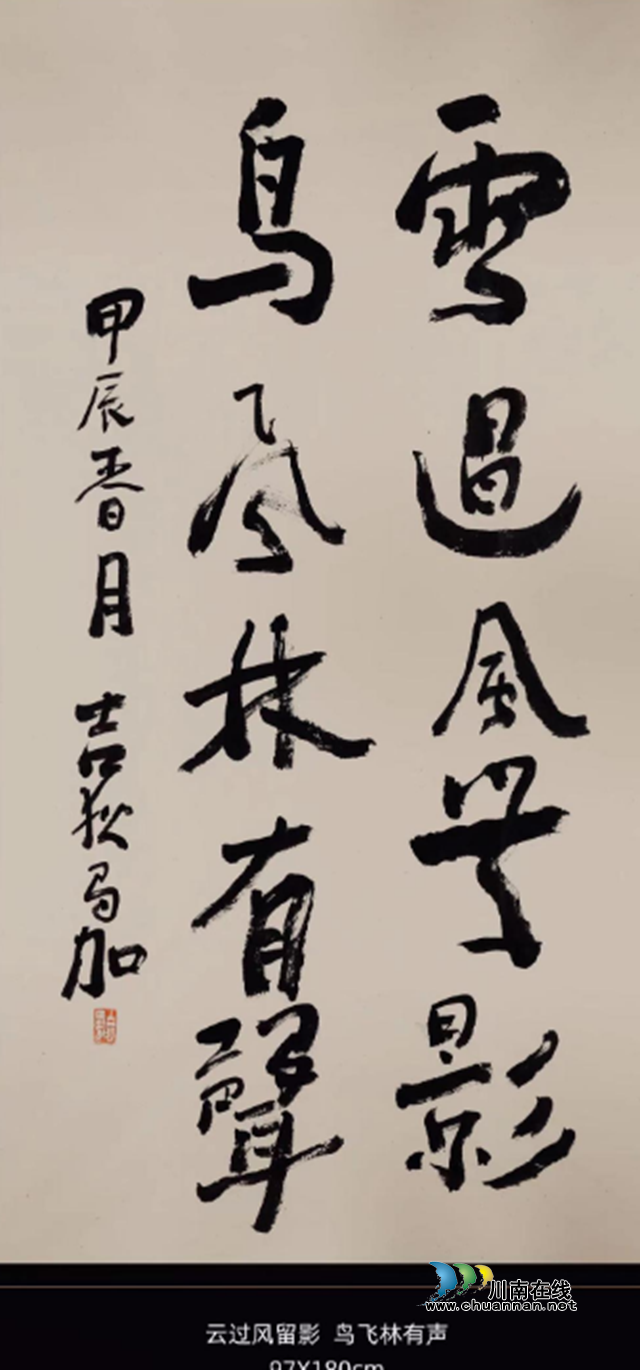 雲過風留影
鳥飛林有聲
甲辰春月 吉狄马加
川南在线
www.chuannan.net
云过风留影 鸟飞林有声
97X180cm